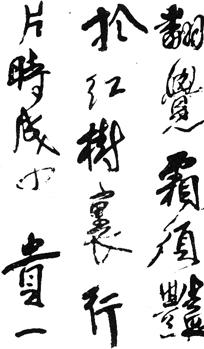 翻覺霜須豔
於紅樹裏行
片時成小貴一